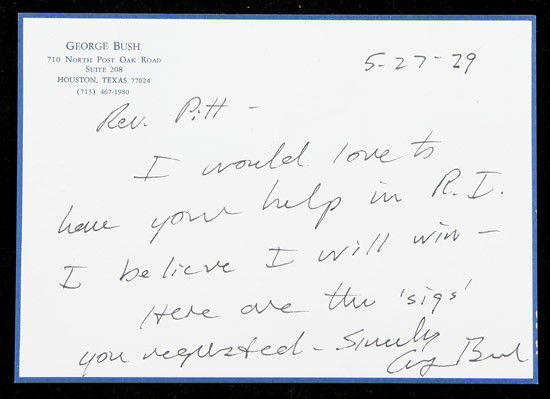 GEORGE BUSH
710 NORTH POST OAK ROAD
SUITE 208
HOUSTON, TEXAS 77024
(713) 467-1980
5-27-79
Rev. Pitt -
I would love to
have your help in R.I.
I believe I will win -
Here are the 'sigs'
you requested - Sincerely
Gg Bush